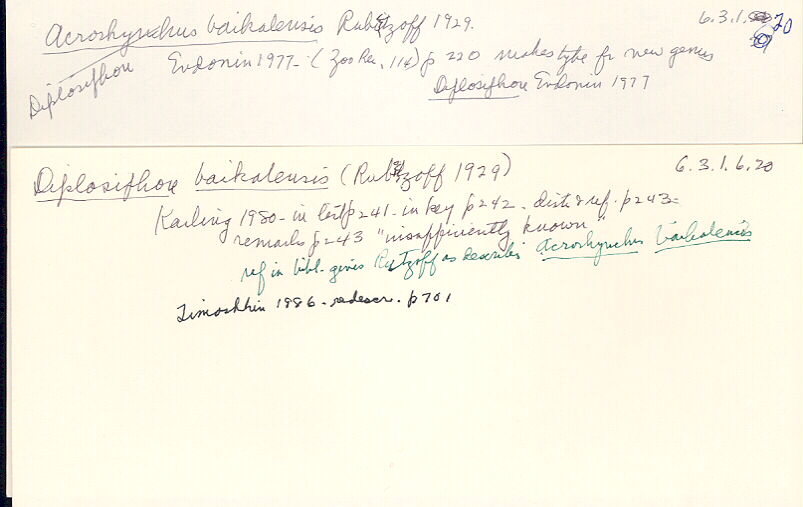 Acrorhynchus baikalensis Rubtzoff 1929. 6.3.1.6.20
Diplosiphon Evdonin 1977 - (Zoo Rec, 114) p 220 makes type fr new genus
Diplosiphon Evdonin 1977
Diplosiphon baikalensis (Rubtzoff 1929) 6.3.1.6.20
Karling 1980 - in list p241 - in key p242 - distr & ref. p243 -
remarks p243 "insufficiently known"
ref in bibl. gives Rutzoff as describ Acrorhynchus baikalensis
Timoshkin 1986 - redescr. p701